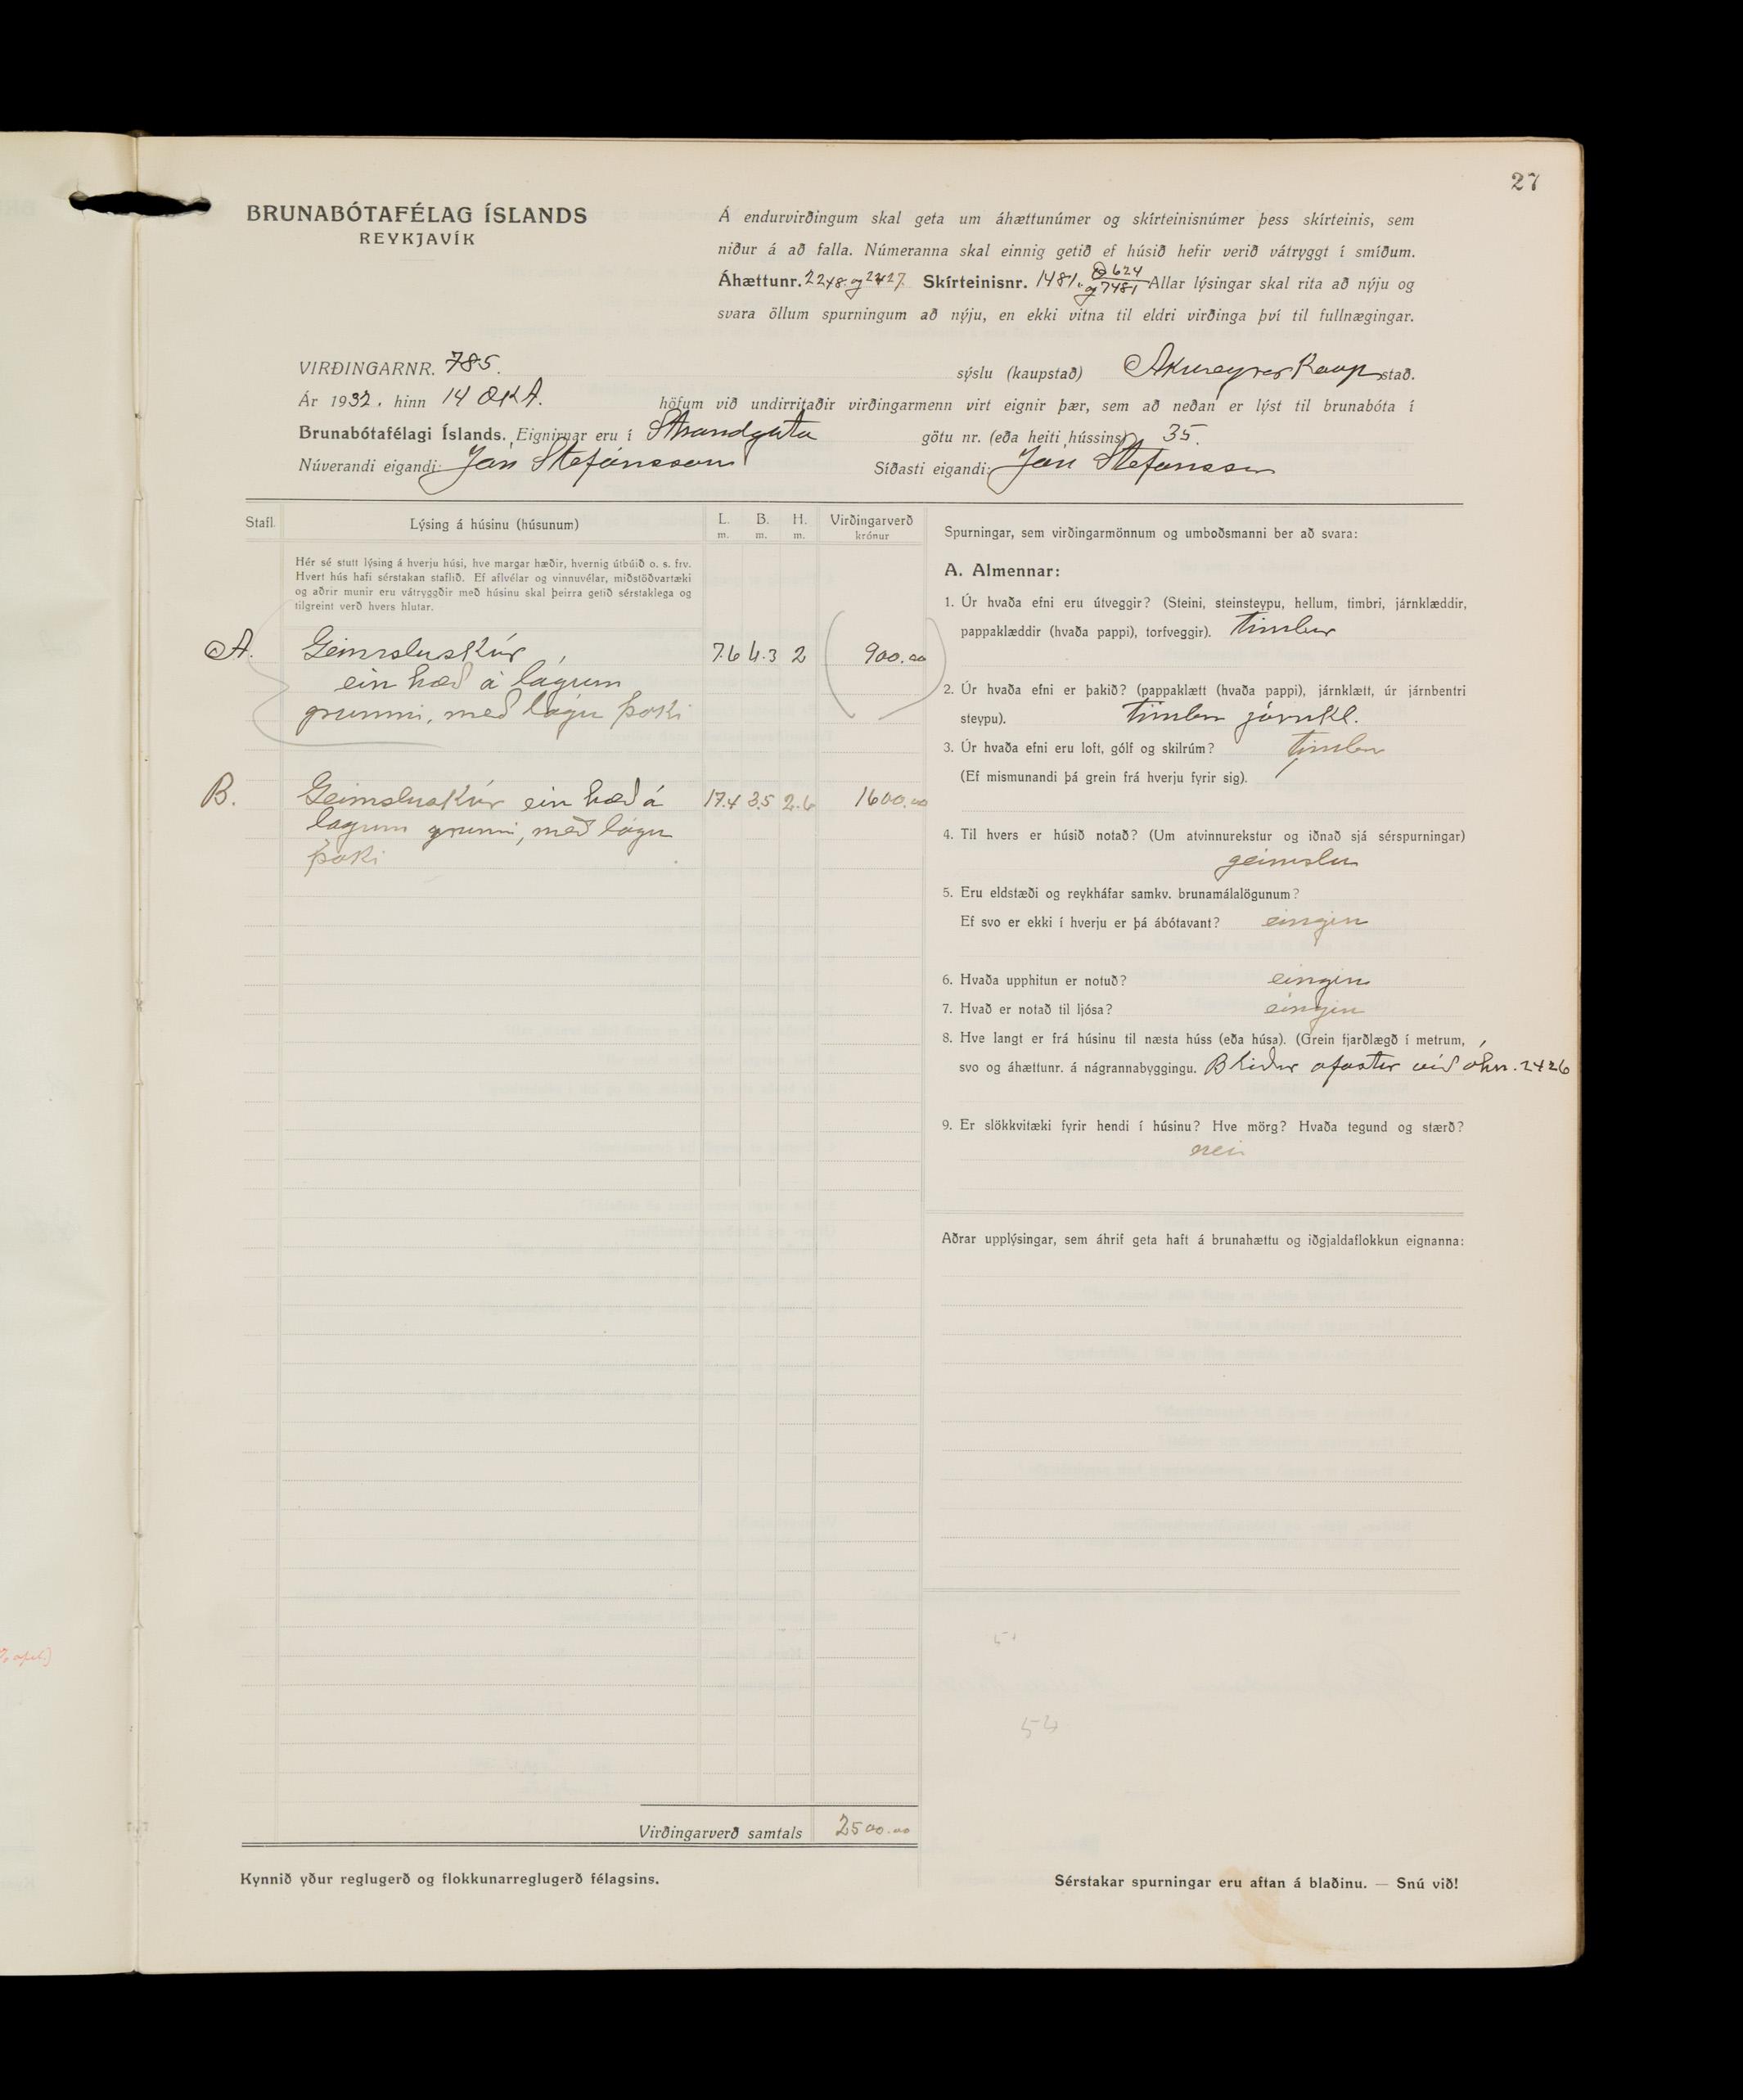 27
BRUNABÓTAFÉLAG ÍSLANDS
REYKJAVÍK
Á endurvirðingum skal geta um áhættunúmer og skírteinisnúmer þess skírteinis, sem
niður á að falla. Númeranna skal einnig getið ef húsið hefir verið vátryggt í smíðum.
Áhættunr. 2248 og 2427 Skírteinisnr. 1481 624 og 7481 Allar lýsingar skal rita að nýju og
svara öllum spurningum að nýju, en ekki vitna til eldri virðinga því til fullnægingar.
VIRÐINGARNR. 785. sýslu (kaupstað) Akureyrar Kaupstað.
Ár 1932. hinn 14 OKt. höfum við undirritaðir virðingarmenn virt eignir þær, sem að neðan er lýst til brunabóta í
Brunabótafélagi Íslands. Eignirnar eru í Strandgata götu nr. (eða heiti hússins) 35.
Núverandi eigandi: Jón Stefánsson Síðasti eigandi: Jón Stefánsson
Stafl. Lýsing á húsinu (húsunum) L. m. B. m. H. m. Virðingarverð krónur
Hér sé stutt lýsing á hverju húsi, hve margar hæðir, hvernig útbúið o. s. frv.
Hvert hús hafi sérstakan staflið. Ef aflvélar og vinnuvélar, miðstöðvartæki
og aðrir munir eru vátryggðir með húsinu skal þeirra getið sérstaklega og
tilgreint verð hvers hlutar.
A. Geimsluskúr, 7.6 4.3 2 900.00
ein hæð á lágum
grunni, með lágu þaki
B. Geimsluskúr ein hæð á 17.4 3.5 2.6 1600.00
lagum grunni, með lágu
þaki
Virðingarverð samtals 2500.00
Kynnið yður reglugerð og flokkunarreglugerð félagsins.
Spurningar, sem virðingarmönnum og umboðsmanni ber að svara:
A. Almennar:
1. Úr hvaða efni eru útveggir? (Steini, steinsteypu, hellum, timbri, járnklæddir,
pappaklæddir (hvaða pappi), torfveggir). Timbur
2. Úr hvaða efni er þakið? (pappaklætt (hvaða pappi), járnklætt, úr járnbentri
steypu). Timbur járnkl.
3. Úr hvaða efni eru loft, gólf og skilrúm? Timbur
(Ef mismunandi þá grein frá hverju fyrir sig).
4. Til hvers er húsið notað? (Um atvinnurekstur og iðnað sjá sérspurningar)
geimslu
5. Eru eldstæði og reykháfar samkv. brunamálalögunum?
Ef svo er ekki í hverju er þá ábótavant? eingin
6. Hvaða upphitun er notuð? eingin
7. Hvað er notað til ljósa? eingin
8. Hve langt er frá húsinu til næsta húss (eða húsa). (Grein fjarðlægð í metrum,
svo og áhættunr. á nágrannabyggingu. B liður afastur við áhn. 2426
9. Er slökkvitæki fyrir hendi í húsinu? Hve mörg? Hvaða tegund og stærð?
nei
Aðrar upplýsingar, sem áhrif geta haft á brunahættu og iðgjaldaflokkun eignanna:
54
Sérstakar spurningar eru aftan á blaðinu. — Snú við!